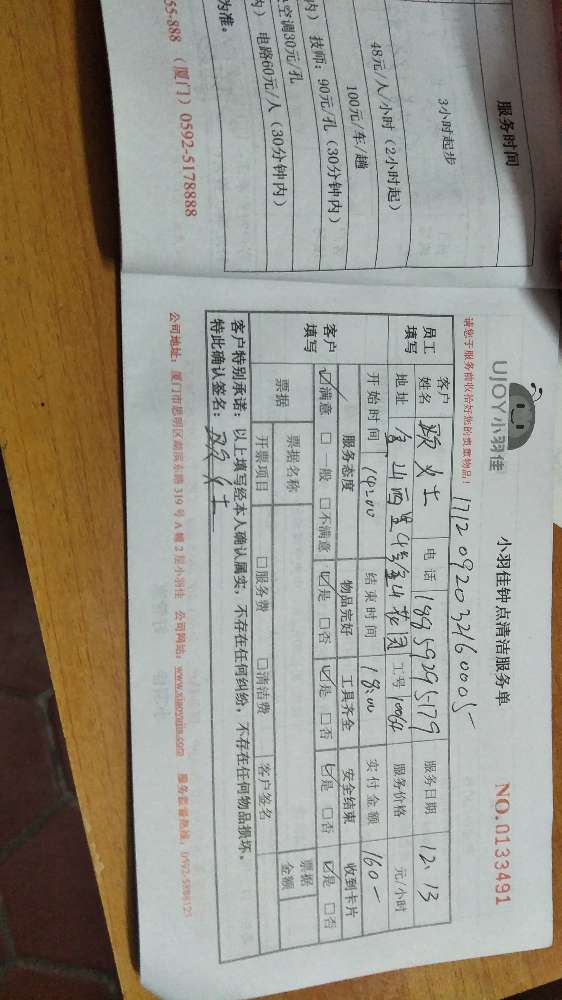 服务时间
3小时起步
48元/人/小时（2小时起）
100元/车/趟
内）技师：90元/孔（30分钟内）
空调30元/孔
内）电路60元/人（30分钟内）
为准。
55-888 （厦门）0592-5178888
UJOY小羽佳
小羽佳钟点清洁服务单
NO.0133491
请您于服务前收拾好您的贵重物品！
1712092032160005
员工填写
客户姓名
电话 18959295179
服务日期 12.13
地址 金山西里4号金山花园
工号 10064
服务价格 元/小时
开始时间 14:00
结束时间 18:00
实付金额 160-
客户填写
服务态度 物品完好 工具齐全 安全结束 收到卡片
☑满意 □一般 □不满意 ☑是 □否 ☑是 □否 ☑是 □否 ☑是 □否
票据 票据名称 票据金额
开票项目 □服务费 □清洁费 客户签名
客户特别承诺：以上填写经本人确认属实，不存在任何纠纷，不存在任何物品损坏。
特此确认签名：
公司地址：厦门市思明区湖滨东路319号A幢2层小羽佳 公司网站：www.xiaoyujia.com 服务监督热线：0592-5886123